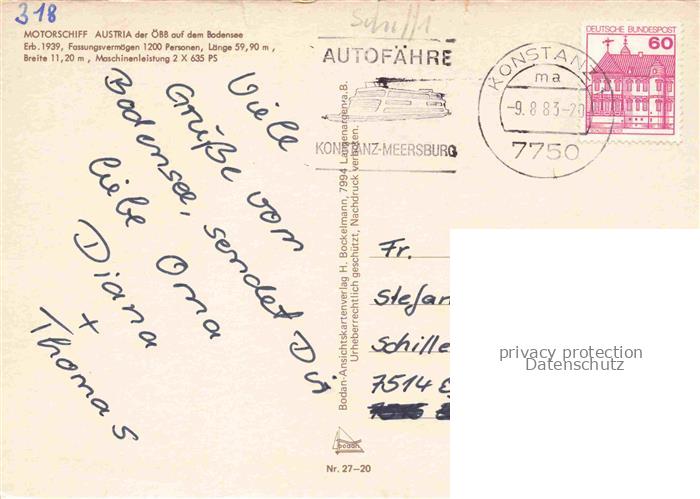 318
MOTORSCHIFF AUSTRIA der ÖBB auf dem Bodensee
Erb. 1939, Fassungsvermögen 1200 Personen, Länge 59,90 m,
Breite 11,20 m, Maschinenleistung 2 X 635 PS
Schiff 1
AUTOFÄHRE
KONSTANZ-MEERSBURG
KONSTANZ
ma
-9.8.83-20
7750
DEUTSCHE BUNDESPOST
60
Viele
Grüße vom
Bodensee, sendet Dir
liebe Oma
Diana
+
Thomas
Bodan-Ansichtskartenverlag H. Bockelmann, 7994 Langenargen a.B.
Urheberrechtlich geschützt, Nachdruck verboten.
Fr.
Stefan
Schille
7514 E
privacy protection
Datenschutz
bodan
Nr. 27-20